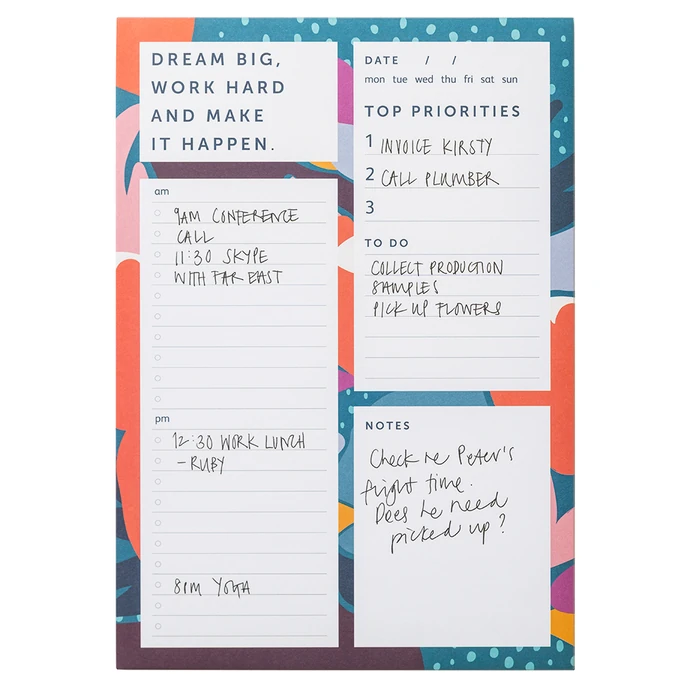 DREAM BIG,
WORK HARD
AND MAKE
IT HAPPEN.
am
9AM CONFERENCE
CALL
11:30 SKYPE
WITH FAR EAST
pm
12:30 WORK LUNCH
-RUBY
8PM YOGA
DATE / /
mon tue wed thu fri sat sun
TOP PRIORITIES
1 INVOICE KIRSTY
2 CALL PLUMBER
3
TO DO
COLLECT PRODUCTION
SAMPLES
PICK UP FLOWERS
NOTES
Check re Peter's
flight time.
Does he need
picked up?